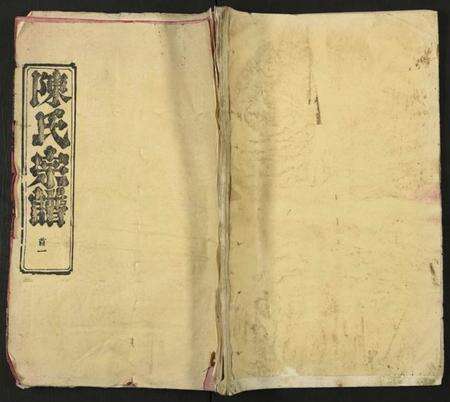 陳氏宗譜
首一